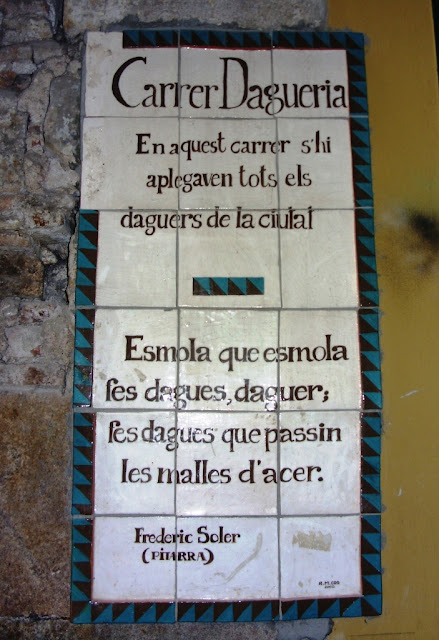 Carrer Dagueria
En aquest carrer s'hi
aplegaven tots els
daguers de la ciutat
Esmola que esmola
fes dagues, daguer;
fes dagues que passin
les malles d'acer.
Frederic Soler
(PITARRA)